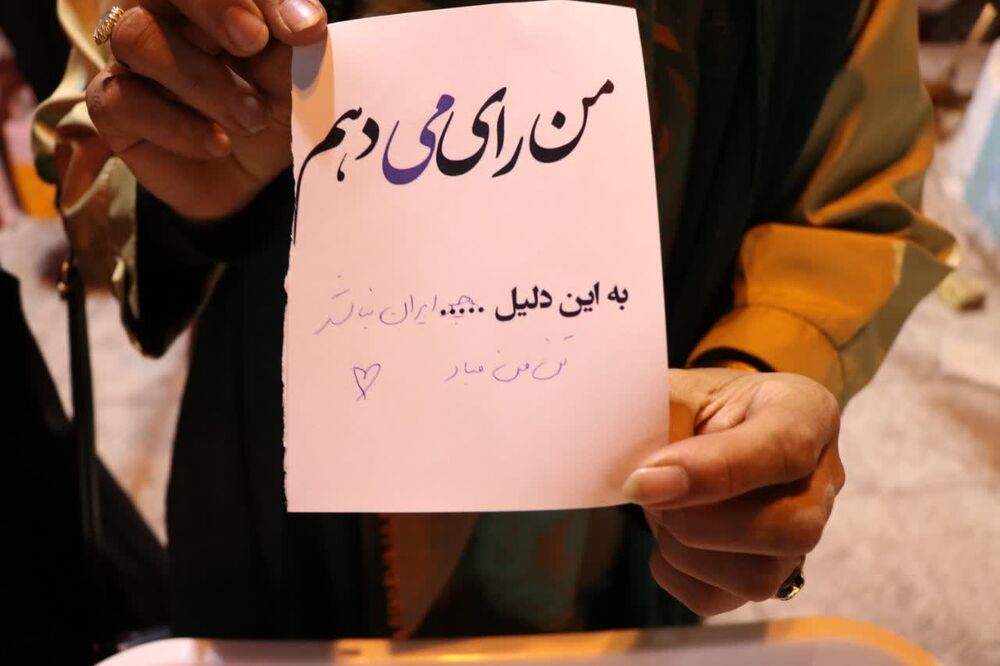 من رای می دهم
به این دلیل ..... چو ایران نباشد
تن من مباد